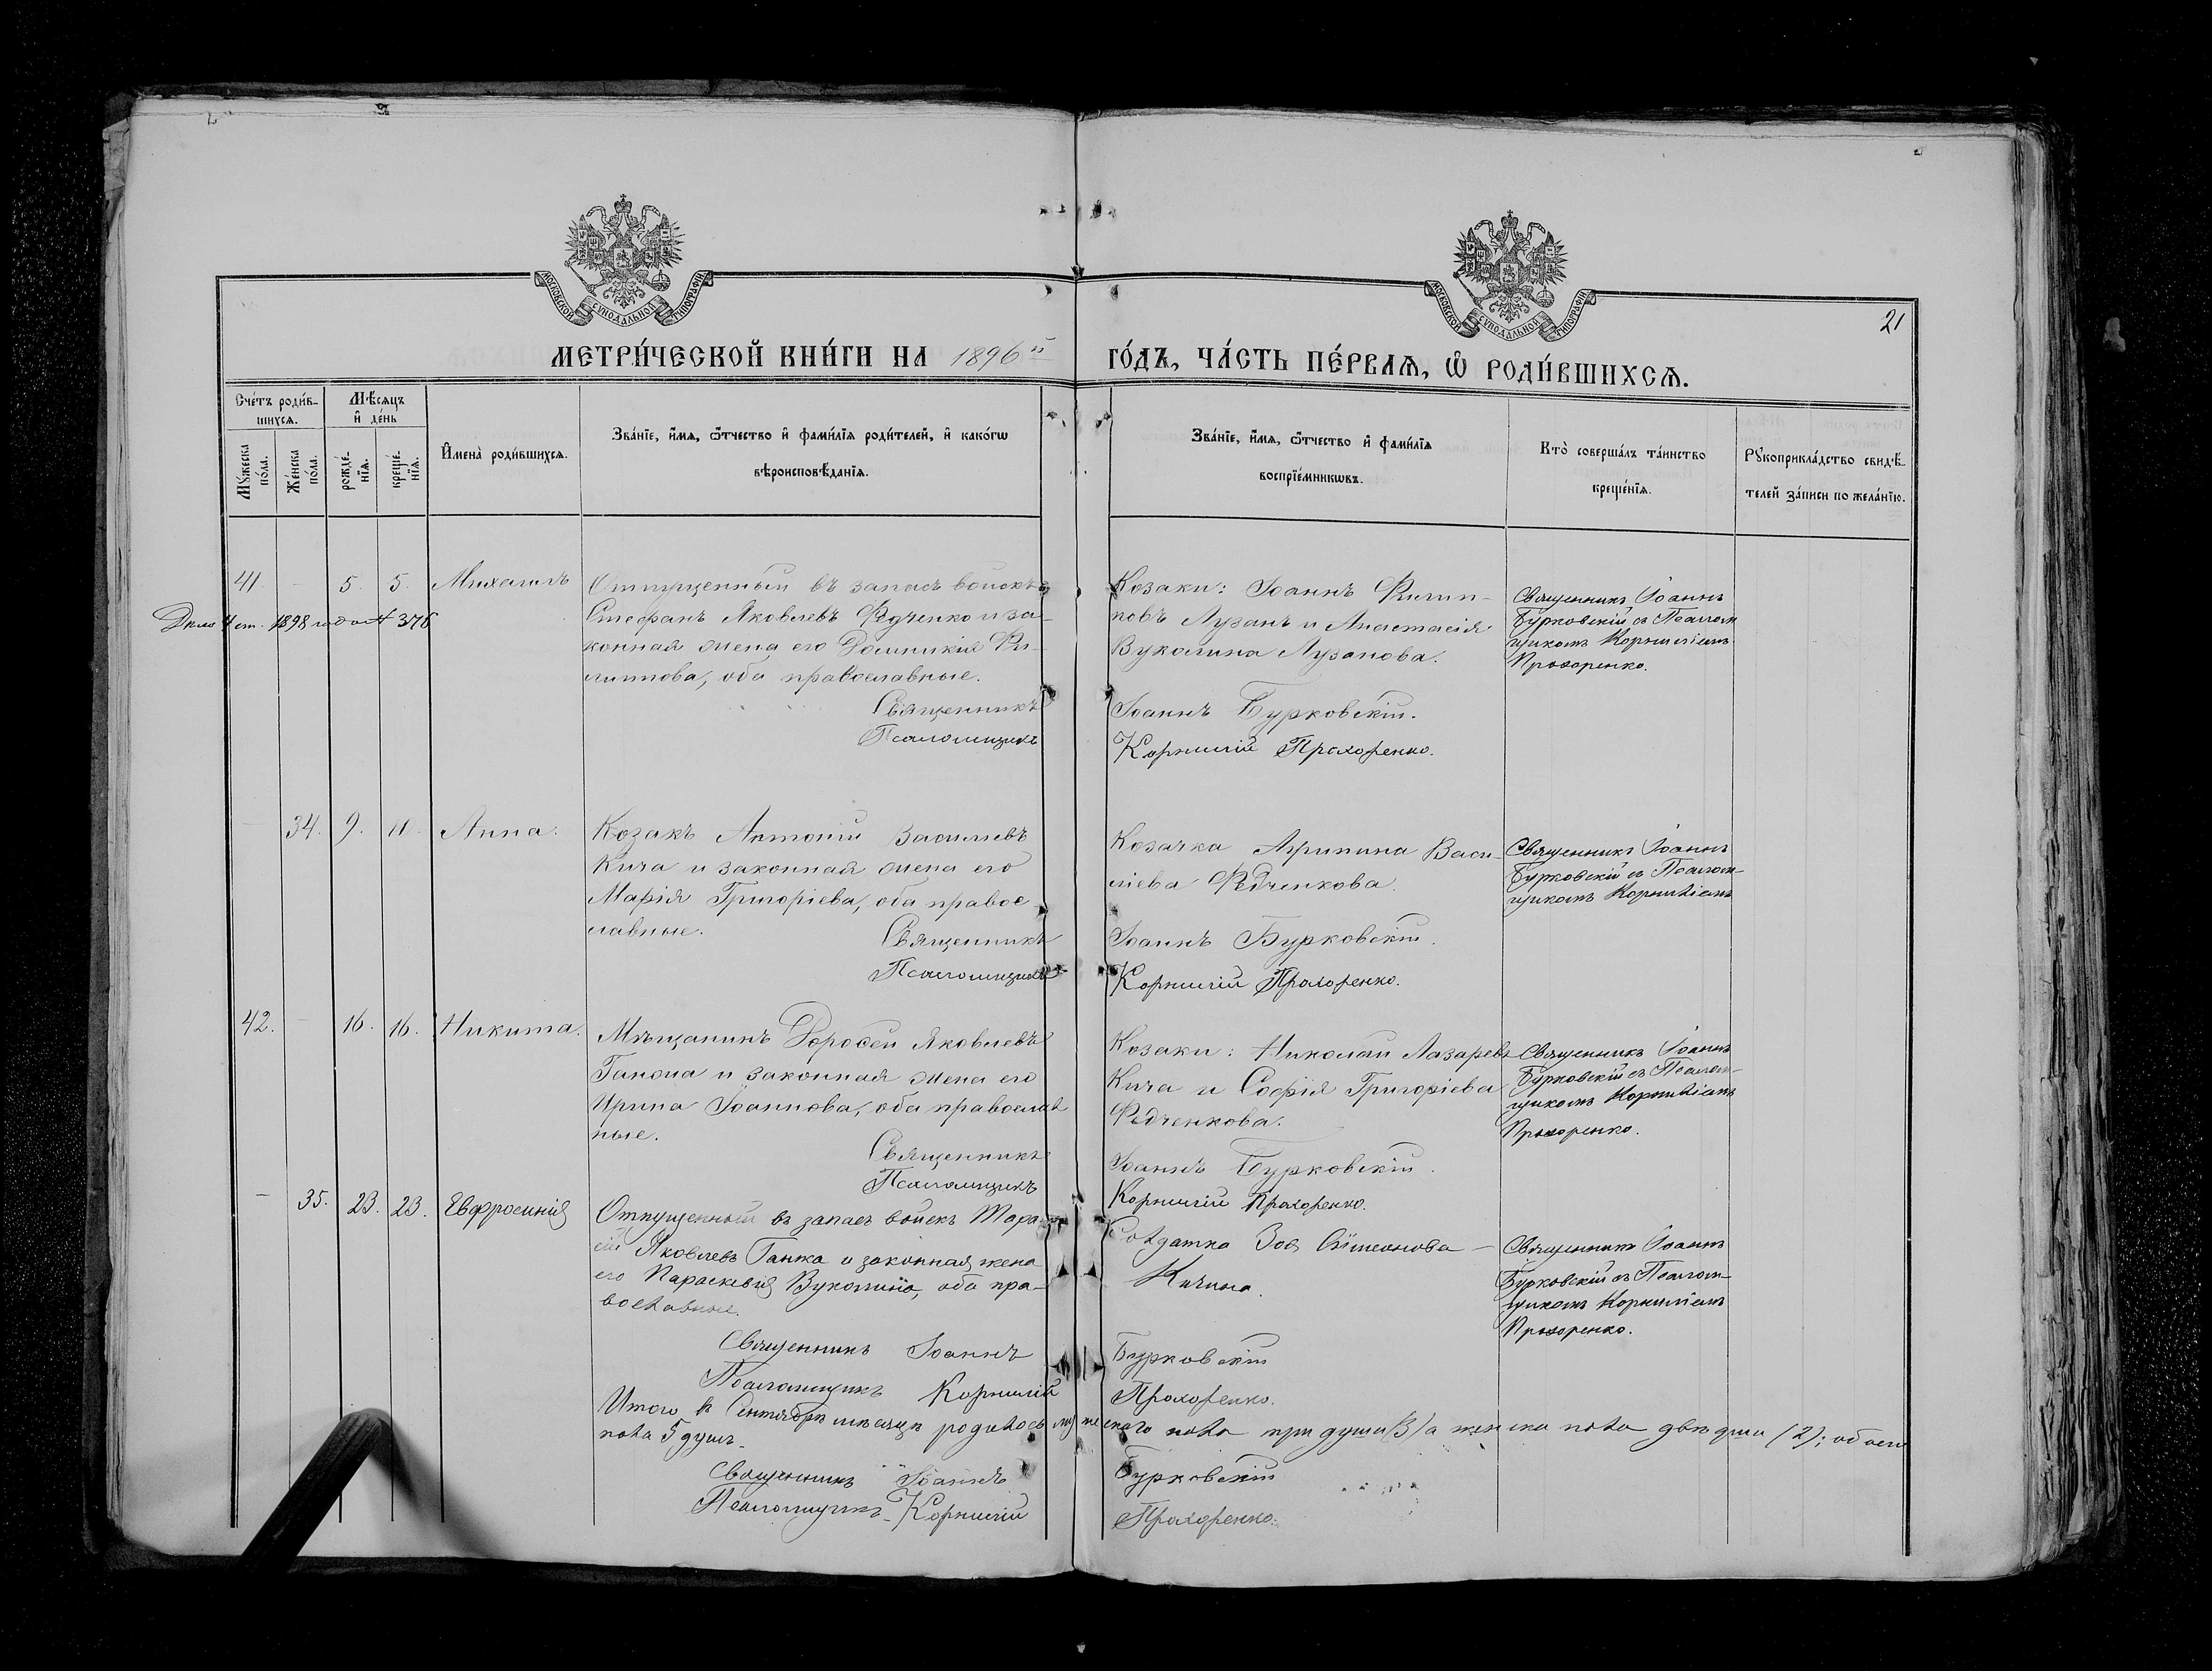 МОСКОВСКОЙ СУНОДАЛЬНОЙ ТИПОГРАФІИ
МОСКОВСКОЙ СУНОДАЛЬНОЙ ТИПОГРАФІИ
21
МЕТРИ́ЧЕСКОЙ КНИ́ГИ НА 1896й
ГО́ДЪ, ЧА́СТЬ ПЕ́РВАѦ, Ѡ҆ РОДИ́ВШИХСѦ.
Сче́тъ роди́в-
шихсѧ.
Мѣ́сѧцъ
и҆ де́нь
Мꙋ́жеска
по́ла.
Же́нска
по́ла.
рожде́-
нїѧ.
креще́-
нїѧ.
И҆мена̀ роди́вшихсѧ.
Зва́нїе, и҆́мѧ, ѻ҆́тчество и҆ фами́лїѧ роди́телей, и҆ како́гѡ
вѣроисповѣ́данїѧ.
Зва́нїе, и҆́мѧ, ѻ҆́тчество и҆ фами́лїѧ
воспрїе́мникѡвъ.
Кто̀ соверша́лъ та́инство
креще́нїѧ.
Рꙋкоприкла́дство свидѣ́-
телей за́писи по жела́нїю.
41. - 5. 5. Михаилъ
Отпущенный въ запасъ войскъ
Стефанъ Яковлевъ Федченко и за-
конная жена его Домникія Фи-
липпова, оба православные.
Священникъ
Псаломщикъ
Козаки: Іоаннъ Филип-
повъ Лузанъ и Анастасія
Вуколина Лузанова.
Іоаннъ Бурковскій.
Корнилій Прохоренко.
Священникъ Іоаннъ
Бурковскій съ Псалом-
щикомъ Корниліемъ
Прохоренко.
1898 376
34. 9. 11. Анна.
Козакъ Антоній Василіевъ
Кича и законная жена его
Марія Григоріева, оба правос-
лавные.
Священникъ
Псаломщикъ
Козачка Агрипина Васи-
ліева Федченкова.
Іоаннъ Бурковскій.
Корнилій Прохоренко.
Священникъ Іоаннъ
Бурковскій съ Псалом-
щикомъ Корниліемъ
42. - 16. 16. Никита.
Мѣщанинъ Дороѳей Яковлевъ
и законная жена его
Ирина Іоаннова, оба православ
ные.
Священникъ
Псаломщикъ
Козаки: Николай Лазаревъ
Кича и Софія Григоріева
Федченкова.
Іоаннъ Бурковскій.
Корнилій Прохоренко.
Священникъ Іоаннъ
Бурковскій съ Псалом-
щикомъ Корниліемъ
Прохоренко.
- 35. 23. 23. Евфросинія
Отпущенный въ запасъ войскъ Тара-
сій Яковлевъ Ганжа и законная жена
его Параскевія Вуколина, оба пра-
вославные.
Священникъ Іоаннъ
Псаломщикъ Корнилій
Солдатка Зоя Сѵмеонова
Кичина.
Бурковскій
Прохоренко.
Священникъ Іоаннъ
Бурковскій съ Псалом-
щикомъ Корниліемъ
Прохоренко.
Итого въ Сентябрѣ мѣсяцѣ родилось мужескаго пола три души (3) а женска пола двѣ души (2); обоего
пола 5 душъ.
Священникъ Іоаннъ Бурковскій
Псаломщикъ Корнилій Прохоренко.